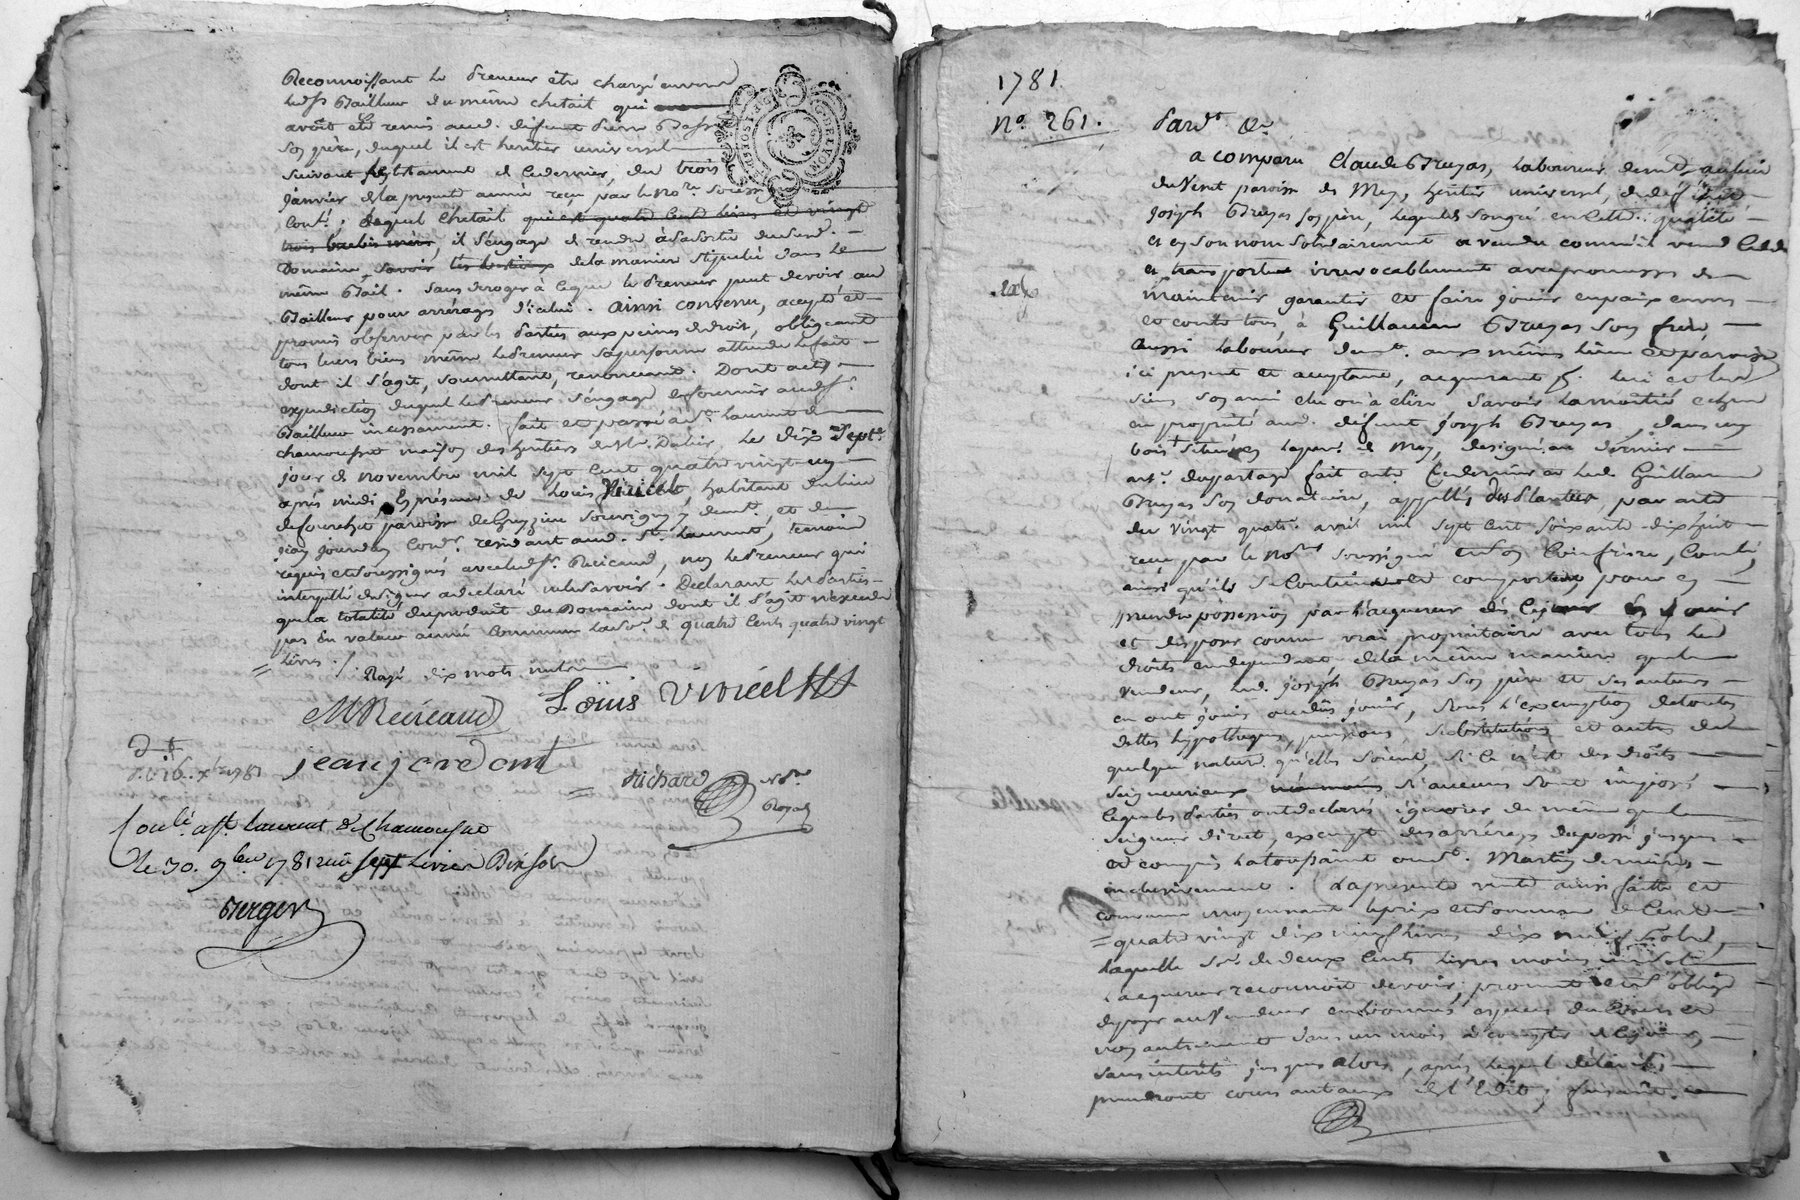 Reconnoissant le preneur être chargé envers
led. Sr Bailleur du même chetail qui
avoit été remis aud. deffunt pierre
son frère, duquel il est heritier universel
suivant testament de ce dernier, du trois
janvier de la presente année reçu par le nore soussigné
Conlé; lequel chetail qui est quatre cent livres et vingt
trois brebis mères, il s'engage de rendre à sa sortie dud.
Domaine, savoir les bestiaux de la maniere stipulée dans le
même Bail. Sans deroger à ce que le preneur peut devoir au
Bailleur pour arrérages d'icelui. ainsi convenu, accepté et
promis observer par les parties aux peines de droit, obligeant
tous leurs biens même le preneur sa personne attendu le fait
dont il s'agit, soumettant, renonceant. Dont acte
expedition duquel le preneur s'engage de fournir aud. Sr
Bailleur incessament. fait et passé à St. Laurent de
chamousset maison des heritiers de Mr. le dix Septe
jour de novembre mil sept cent quatre vingt un
après midi. En présence de Louis Viricel, habitant du lieu
de paroisse de souvigny y demt., et de
jean jourdan cordr. residant aud. St. Laurent, temoins
requis et soussignés avec led. Sr. Rericaud, non le preneur qui
interpellé de signer a declaré ne le savoir. Declarant les parties
que la totalité du produit du Domaine dont il s'agit n'excede
pas en valeur année commune la so.e de quatre cents quatre vingt
livres ./.
Rayé dix mots nuls
MRericaud Loüis Viricel
jean jordant
Richard Nore
Royal
X.bre 1781
Conlé. à St. laurent de Chamousset
le 30. 9.bre 1781 reçu sept livres Dix sols
Berger
1781.
No. 261.
Pardt. &c.
a comparu Claude Bruyas, laboureur demt. au lieu
du Veret paroisse de Mey, heritier universel, de deffunt
joseph Bruyas son père, lequel de son gré en cette qualité
et en son nom solidairement a vendu comme il vend cede
et transporte irrevocablement avec promesse de
maintenir garantir et faire jouir en paix envers
et contre tous, à Guillaume Bruyas son frère
aussi laboureur demt. aux mêmes lieu et paroisse
ici present et acceptant, acquerant pr. lui et les
siens son ami elu ou à elire savoir la moitié echue
en proprieté aud. défunt joseph Bruyas, dans un
bois situé en lad. parse. de Mey, designé au dernier
art. du partage fait entre ce dernier et led. Guillaume
Bruyas son donataire, appellés des plantées, par acte
du vingt quatre avril mil sept cent soixante-dix huit
reçu par le Nore soussigné et son Confrère, Conlé,
ainsi qu'il se contient et comporte pour en
prendre possession par l'acquereur dès ce jour en jouir
et disposer comme vrai proprietaire avec tous les
droits en dependant, de la même maniere que le
vendeur, led. joseph Bruyas son père et ses auteurs
en ont joui ou dû jouir, sous l'exemption de toutes
dettes hypotheques, pensions, substitutions et autres de
quelque nature qu'elles soient, si ce n'est des droits
seigneuriaux si aucuns sont imposés
lesquels les parties ont declaré ignorer de même que le
seigneur direct, exempt des arrérages du passé jusques
et compris la toussaint ou St. Martin derniers
inclusivement. La presente vente ainsi faitte et
convenue moyennant le prix et somme de Cent
quatre vingt dix neuf livres dix neuf sols,
laquelle so.e de deux cents livres moins un sol
l'acquereur reconnoit devoir, promet et s'oblige
de payer au vendeur en bonnes especes du cours et
non autrement dans un mois à compter de ce jour,
sans interets jusques alors, après lequel délai ils
prendront cours au taux de l'Edit; faisant